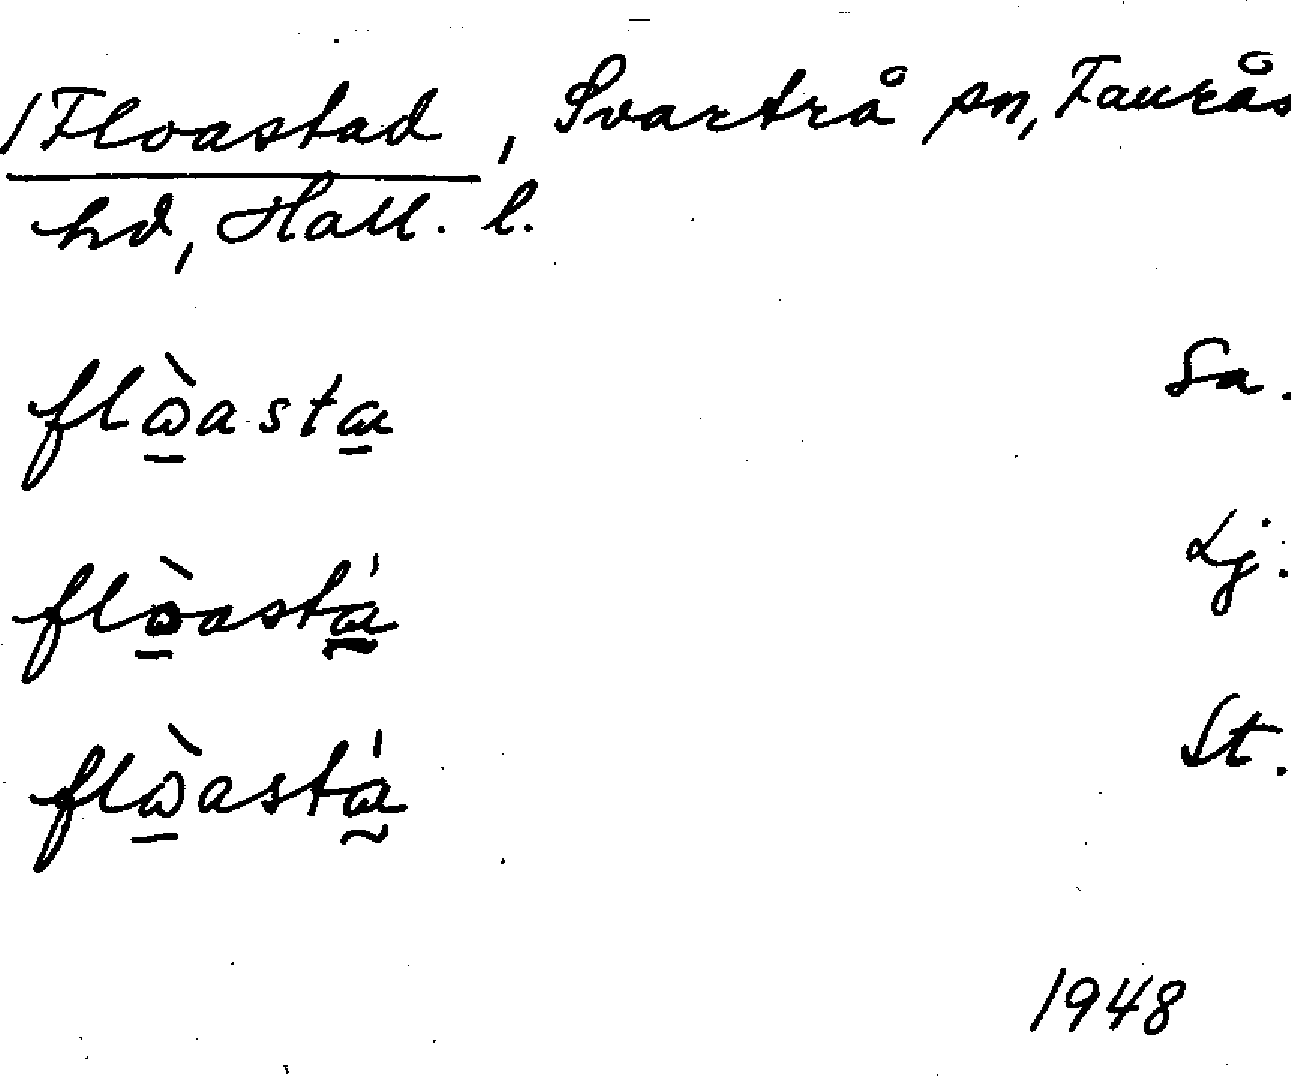 /Floastad, Svartrå sn, Faurås
hd, Hall. l.
flὼ̱asta̱ Sa.
flὼ̱astá̱ Lj.
flὼ̱astá̰ St.
1948